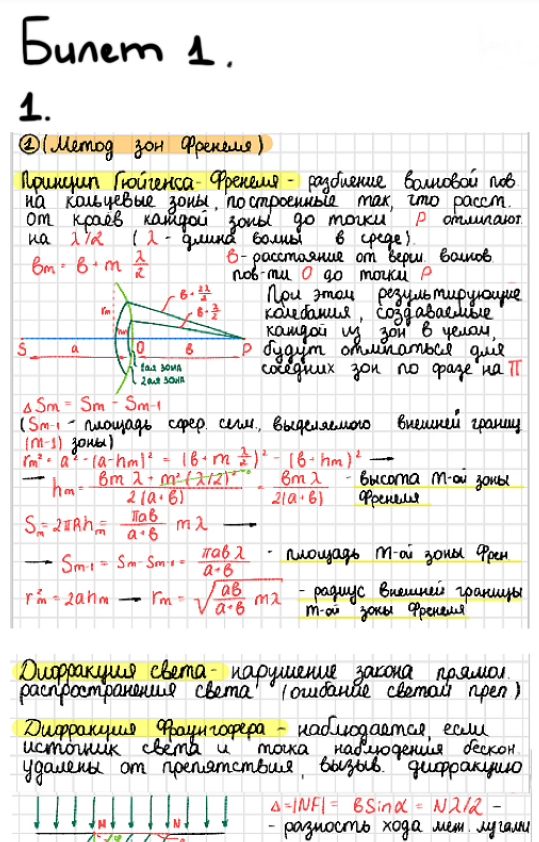 Билет 1.
1.
① (Метод зон Френеля)
Принцип Гюйгенса-Френеля - разбиение волновой пов.
на кольцевые зоны, построенные так, что расст.
от краёв каждой зоны до точки P отличают
на λ/2 (λ - длина волны в среде).
bm = b + m λ/2 b - расстояние от верш. волнов.
пов-ти O до точки P
При этом результирующие
колебания, создаваемые
каждой из зон в целом,
будут отличаться для
соседних зон по фазе на π
b + 2λ/2
b + λ/2
rm
hm
S a O b P
1ая зона
2ая зона
ΔSm = Sm - Sm-1
(Sm-1 - площадь сфер. сегм., выделяемого внешней границ
(m-1) зоны)
rm² = a² - (a-hm)² = (b + m λ/2)² - (b + hm)² →
→ hm = bm λ + m² (λ/2)² / 2(a+b) = bm λ / 2(a+b) - высота m-ой зоны
Френеля
Sm = 2πRhm = πab / a+b mλ →
→ Sm-1 = Sm - Sm-1 = πab λ / a+b - площадь m-ой зоны Френ
r²m = 2ahm → rm = √(ab / a+b mλ) - радиус внешней границы
m-ой зоны Френеля
Дифракция света - нарушение закона прямол.
распространения света (огибание светом преп)
Дифракция Фраунгофера - наблюдается, если
источник света и точка наблюдения бескон.
удалены от препятствия, вызыв. дифракцию
N N
Δ = |NF| = bSinα = Nλ/2 -
- разность хода меж. лучами